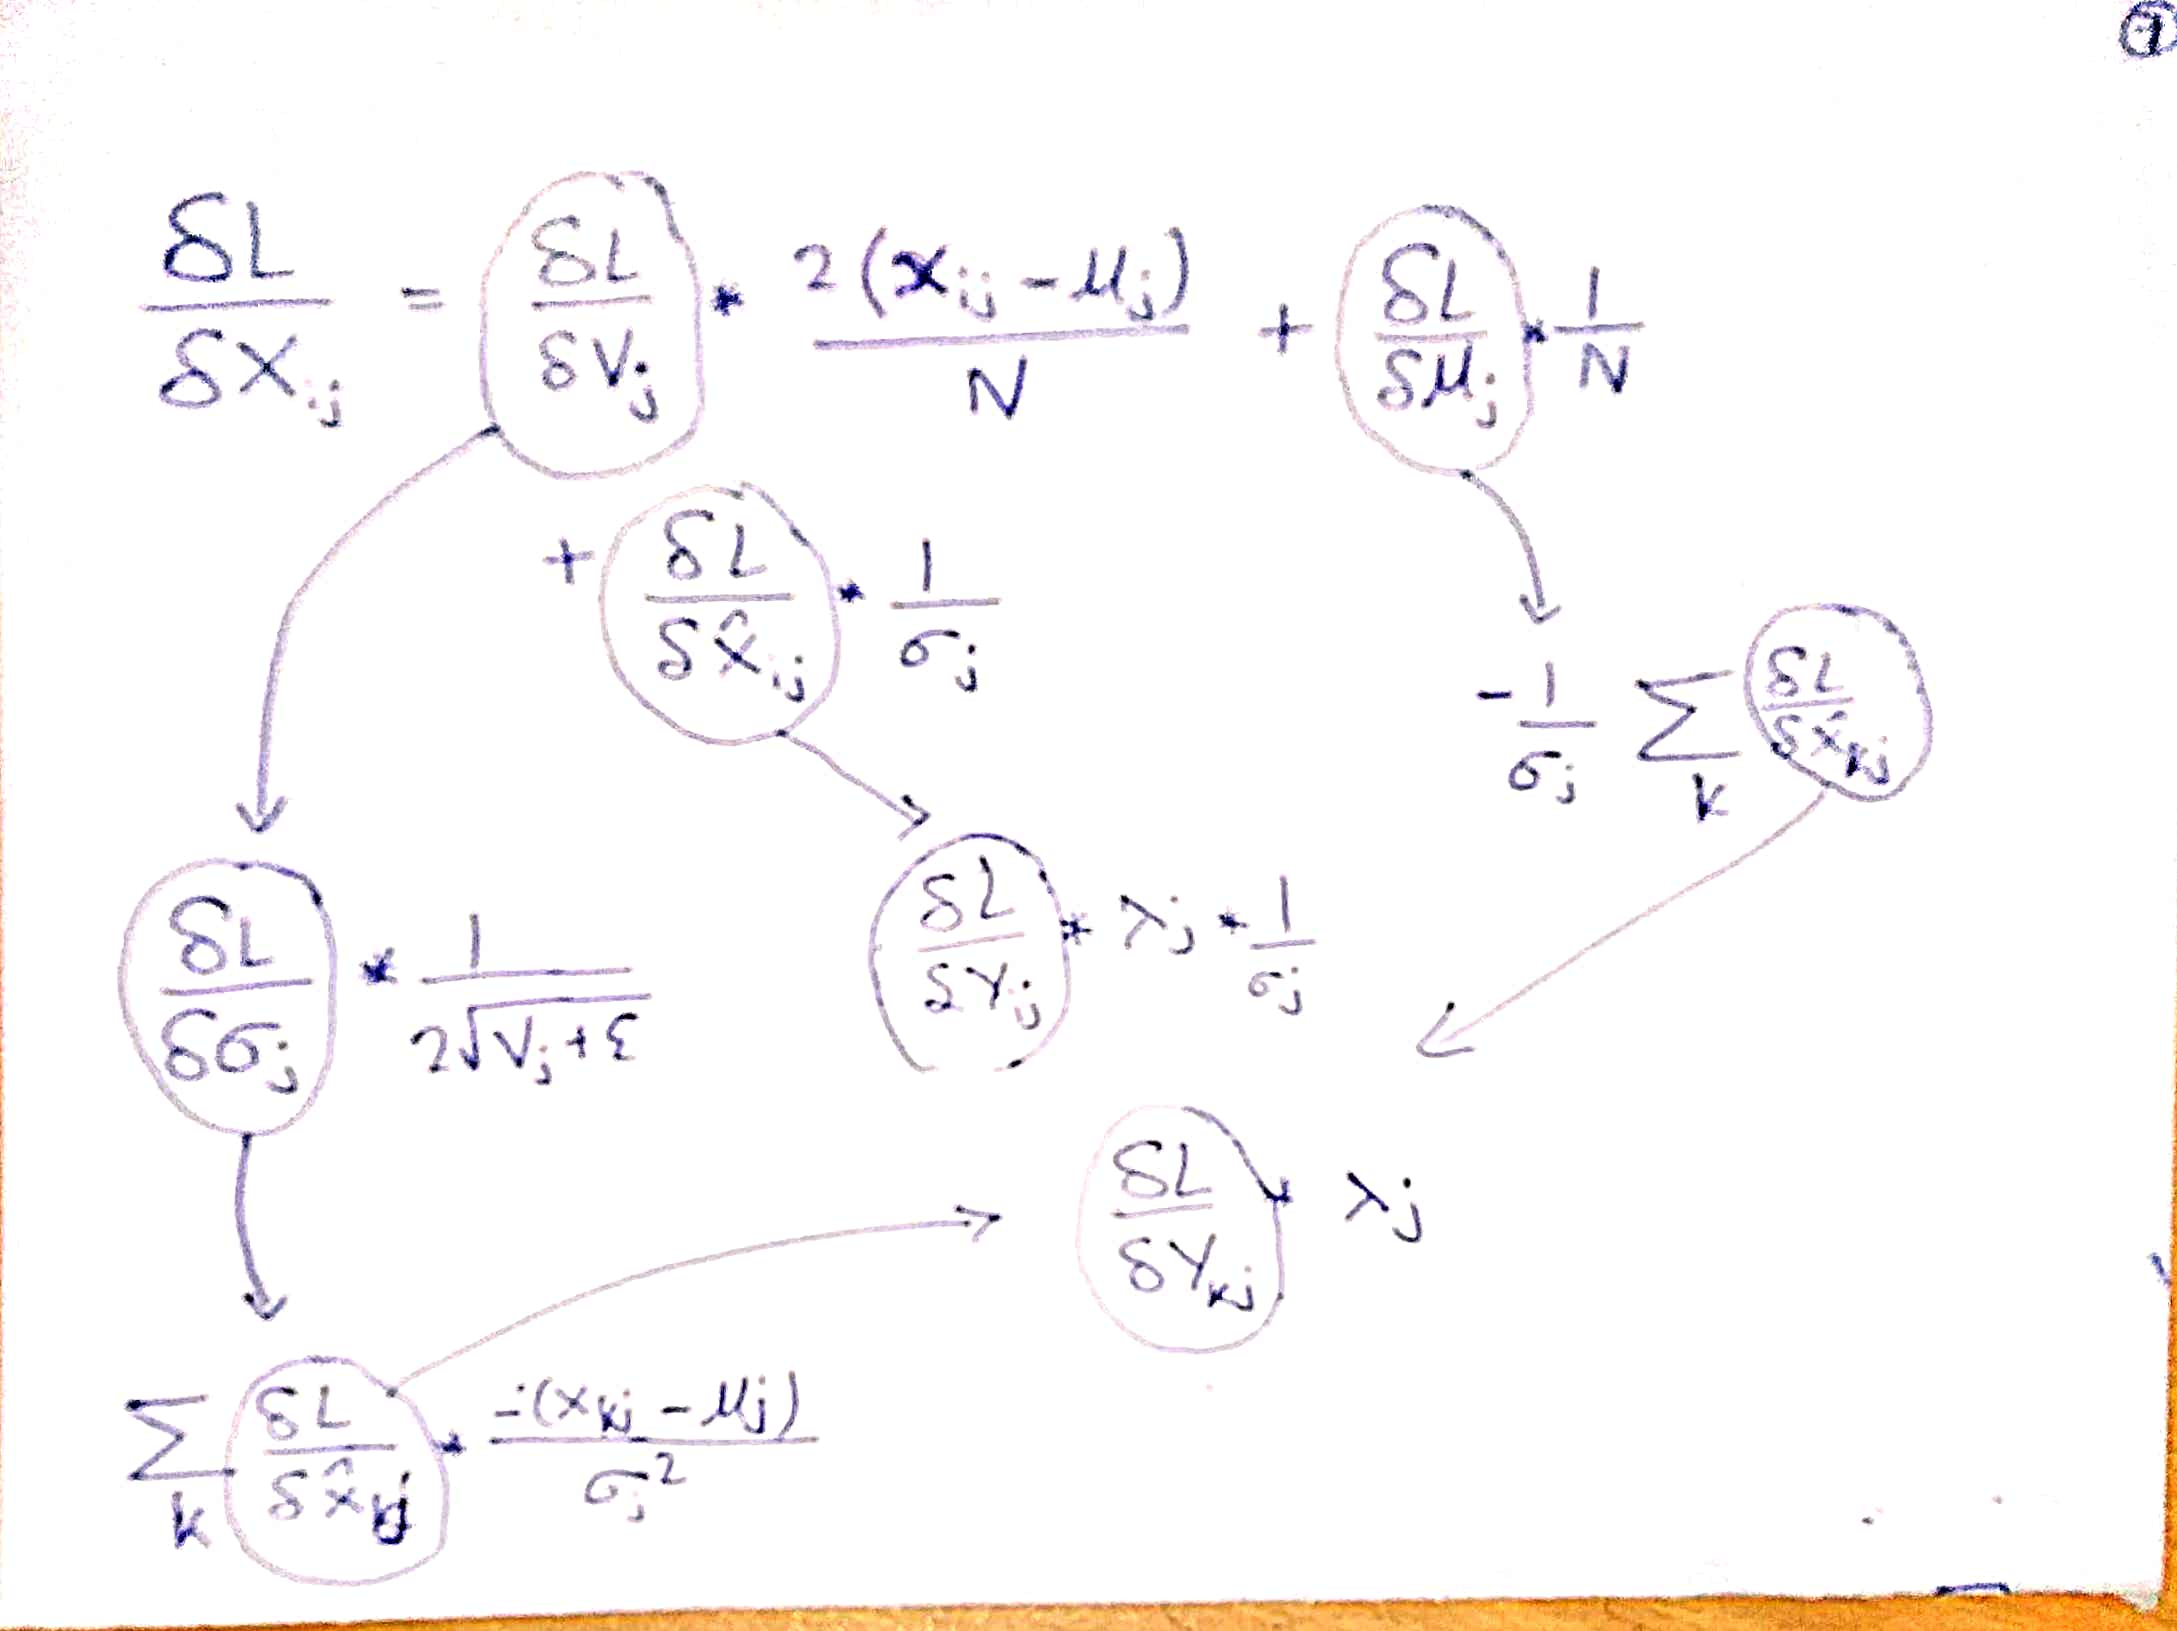 ①
δL/δX_ij = δL/δV_j * 2(x_ij - μ_j)/N + δL/δμ_j * 1/N
+ δL/δx̂_ij * 1/σ_j
-1/σ_j Σ_k δL/δx̂_kj
δL/δσ_j * 1/(2√(V_j + ε))
δL/δY_ij * λ_j * 1/σ_j
δL/δY_kj * λ_j
Σ_k δL/δx̂_kj * -(x_kj - μ_j)/σ_j²